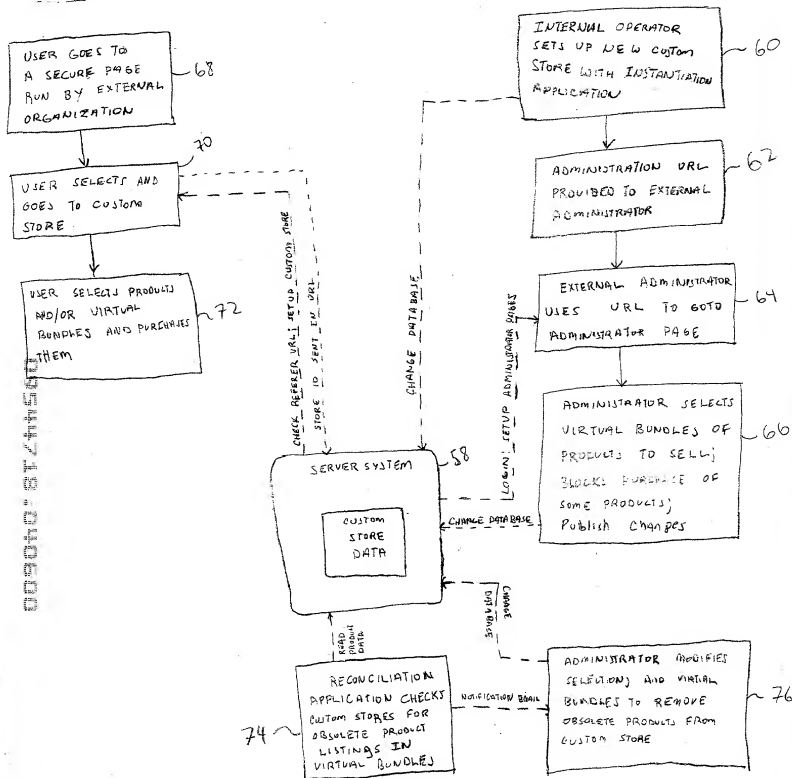 USER GOES TO
A SECURE PAGE
RUN BY EXTERNAL
ORGANIZATION
68
70
USER SELECTS AND
GOES TO CUSTOM
STORE
USER SELECTS PRODUCTS
AND/OR VIRTUAL
BUNDLES AND PURCHASES
THEM
72
INTERNAL OPERATOR
SETS UP NEW CUSTOM
STORE WITH INSTANTIATION
APPLICATION
60
ADMINISTRATION URL
PROVIDED TO EXTERNAL
ADMINISTRATOR
62
EXTERNAL ADMINISTRATOR
USES URL TO GOTO
ADMINISTRATOR PAGE
64
ADMINISTRATOR SELECTS
VIRTUAL BUNDLES OF
PRODUCTS TO SELL;
BLOCKS PURCHASE OF
SOME PRODUCTS;
Publish Changes
66
CHECK REFERER URL; SETUP CUSTOM STORE
STORE ID SENT IN URL
CHANGE DATABASE
LOGIN; SETUP ADMINISTRATOR PAGES
58
SERVER SYSTEM
CUSTOM
STORE
DATA
CHANGE DATABASE
CHANGE
DATABASE
READ
PRODUCT
DATA
RECONCILIATION
APPLICATION CHECKS
CUSTOM STORES FOR
OBSOLETE PRODUCT
LISTINGS IN
VIRTUAL BUNDLES
74
NOTIFICATION EMAIL
ADMINISTRATOR MODIFIES
SELECTIONS AND VIRTUAL
BUNDLES TO REMOVE
OBSOLETE PRODUCTS FROM
CUSTOM STORE
76